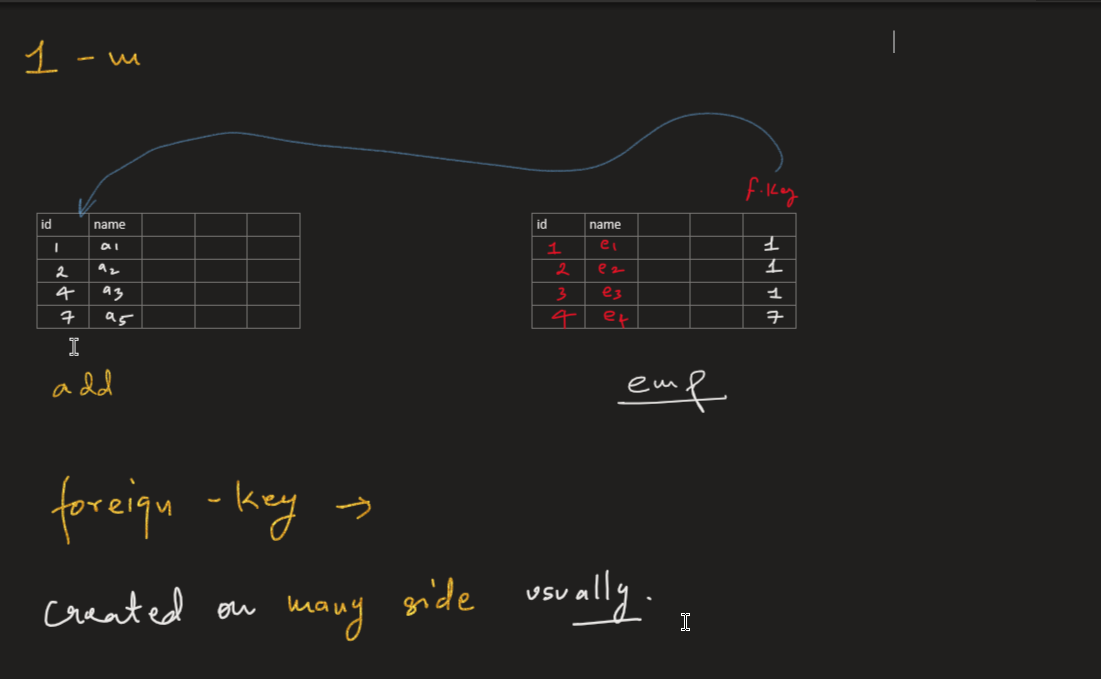 1 - m
f.key
id name
1 a1
2 a2
4 a3
7 a5
id name
1 e1 1
2 e2 1
3 e3 1
4 e4 7
add
emp
foreign - key →
created on many side usually.